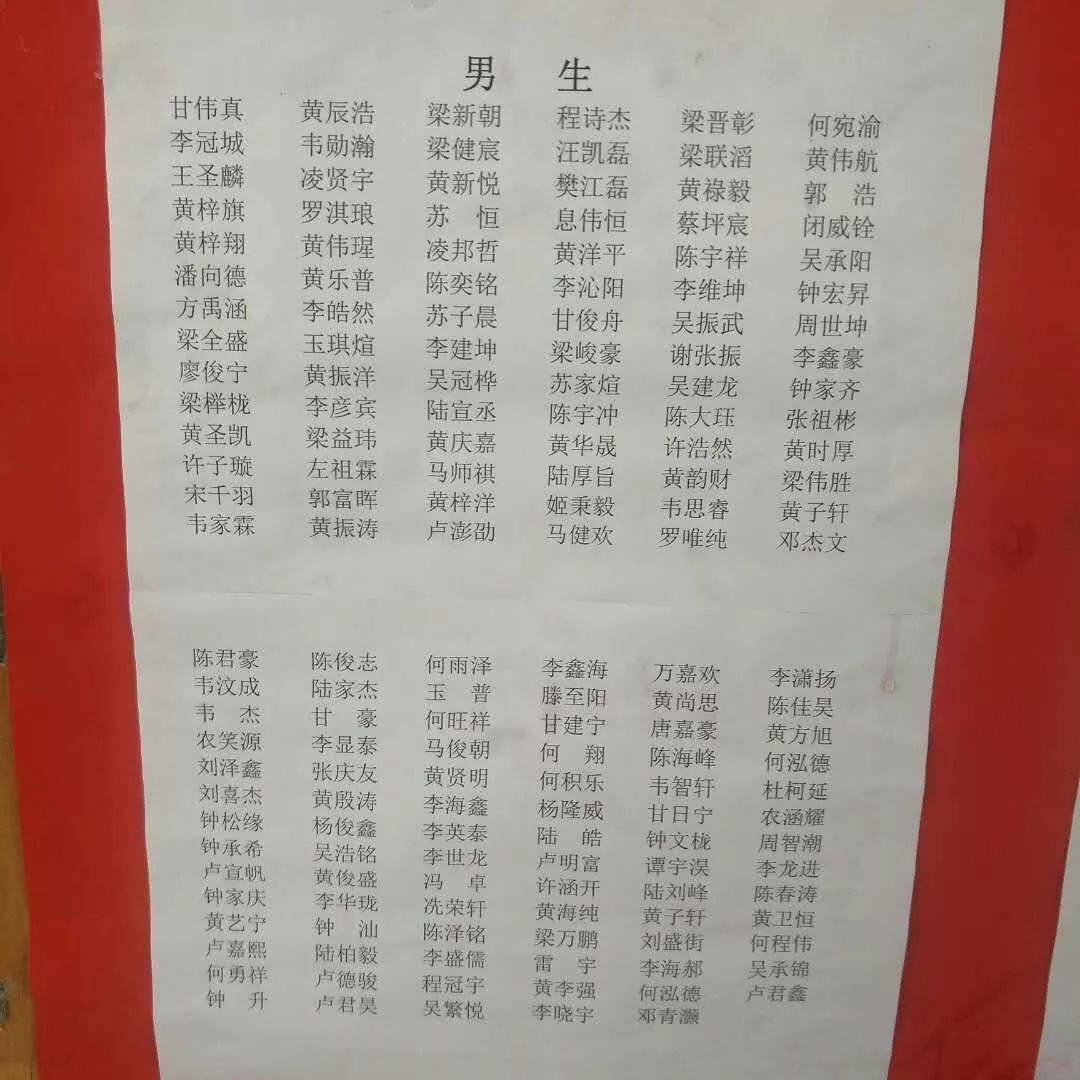 男 生
甘伟真 黄辰浩 梁新朝 程诗杰 梁晋彰 何宛渝
李冠城 韦勋瀚 梁健宸 汪凯磊 梁联滔 黄伟航
王圣麟 凌贤宇 黄新悦 樊江磊 黄禄毅 郭 浩
黄梓旗 罗淇琅 苏 恒 息伟恒 蔡坪宸 闭威铨
黄梓翔 黄伟瑆 凌邦哲 黄洋平 陈宇祥 吴承阳
潘向德 黄乐普 陈奕铭 李沁阳 李维坤 钟宏昇
方禹涵 李皓然 苏子晨 甘俊舟 吴振武 周世坤
梁全盛 玉琪煊 李建坤 梁峻豪 谢张振 李鑫豪
廖俊宁 黄振洋 吴冠桦 苏家煊 吴建龙 钟家齐
梁榉栊 李彦宾 陆宣丞 陈宇冲 陈大珏 张祖彬
黄圣凯 梁益玮 黄庆嘉 黄华晟 许浩然 黄时厚
许子璇 左祖霖 马师祺 陆厚旨 黄韵财 梁伟胜
宋千羽 郭富晖 黄梓洋 姬秉毅 韦思睿 黄子轩
韦家霖 黄振涛 卢澎劭 马健欢 罗唯纯 邓杰文
陈君豪 陈俊志 何雨泽 李鑫海 万嘉欢 李潇扬
韦汶成 陆家杰 玉 普 滕至阳 黄尚思 陈佳昊
韦 杰 甘 豪 何旺祥 甘建宁 唐嘉豪 黄方旭
农笑源 李显泰 马俊朝 何 翔 陈海峰 何泓德
刘泽鑫 张庆友 黄贤明 何积乐 韦智轩 杜柯延
刘喜杰 黄殷涛 李海鑫 杨隆威 甘日宁 农涵耀
钟松缘 杨俊鑫 李英泰 陆 皓 钟文栊 周智潮
钟承希 吴浩铭 李世龙 卢明富 谭宇淏 李龙进
卢宣帆 黄俊盛 冯 卓 许涵开 陆刘峰 陈春涛
钟家庆 李华珑 冼荣轩 黄海纯 黄子轩 黄卫恒
黄艺宁 钟 汕 陈泽铭 梁万鹏 刘盛街 何程伟
卢嘉熙 陆柏毅 李盛儒 雷 宇 李海郝 吴承锦
何勇祥 卢德骏 程冠宇 黄李强 何泓德 卢君鑫
钟 升 卢君昊 吴繁悦 李晓宇 邓青灏